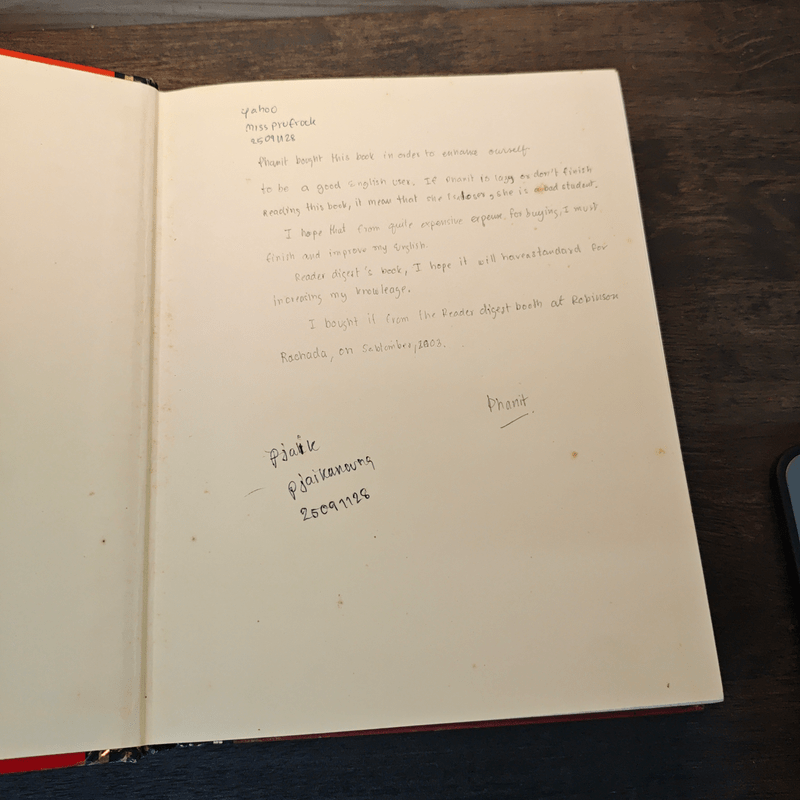 yahoo
Miss Prufrock
25091128
Phanit bought this book in order to enhance ourself
to be a good English user. If Phanit to lazy or don't finish
Reading this book, it mean that she is loser, she is a bad student.
I hope that from quite expensive expense for buying, I must
finish and improve my English.
Reader digest's book, I hope it will have standard for
increasing my knowleage.
I bought it from the Reader digest booth at Robinson
Rachada, on September,
Phanit
Pjaik
pjaikanoung
25091128